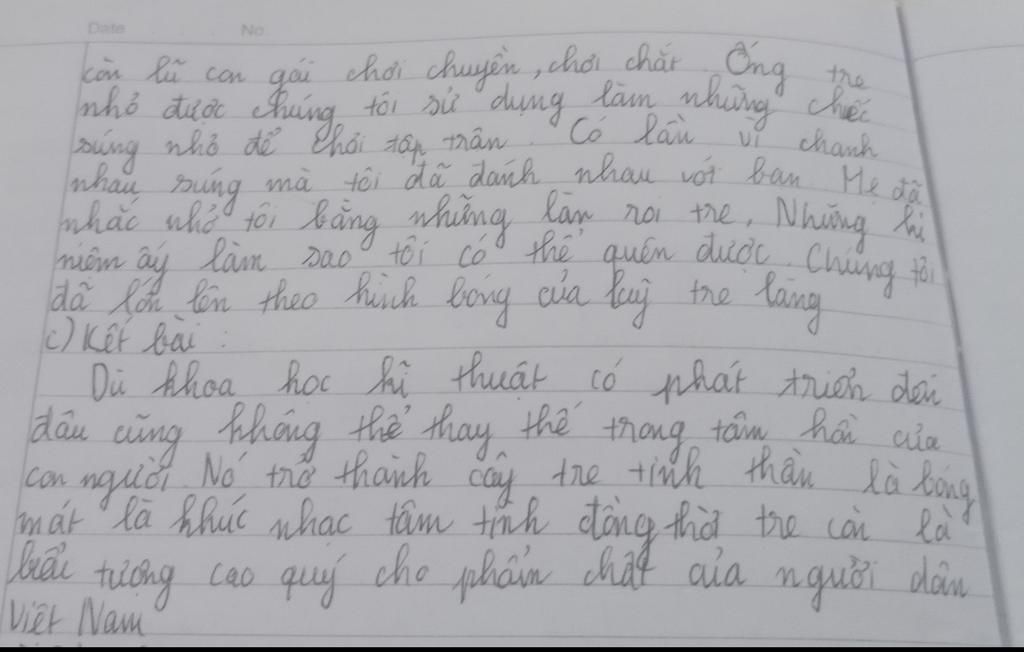 Date No.
còn lũ con gái chơi chuyền, chơi chắt Ống tre
nhỏ được chúng tôi sử dụng làm những chiếc
súng nhỏ để chơi tập trận. Có lần vì chanh
nhau súng mà tôi đã đánh nhau với bạn Mẹ đã
nhắc nhở tôi bằng những lằn roi tre. Những kỉ
niệm ấy làm sao tôi có thể quên được. Chúng tôi
đã lớn lên theo hình bóng của luỹ tre làng
c) Kết bài:
Dù khoa học kĩ thuật có phát triển đến
đâu cũng không thể thay thế trong tâm hồn của
con người. Nó trở thành cây tre tinh thần là bóng
mát là khúc nhạc tâm tình đồng thời tre còn là
biểu tượng cao quý cho phẩm chất của người dân
Việt Nam